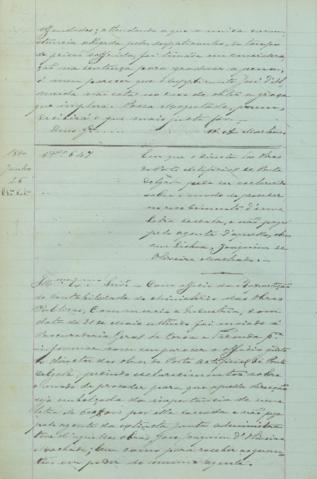 offendidos; attendendo a que a unica circum-
stancia allegada pelos supplicantes, do tempo
de prisão soffrida, foi tomada em consideração
na sentença para graduar a pena;
é meu parecer que o supplicante José
não está no caso de obter a graça
que implora. Vossa Magestade, porem,
decidirá o que mais justo for.
1880
Junho
26
N.º 647
Em que o director das Obras
do Porto artificial de Ponta
Delgada pede ser esclarecido
sobre o modo de proceder
no recebimento d'uma
letra sacada, e não paga
pelo agente d'aquellas obras
em Lisboa, Joaquim de
Oliveira Machado.
Snr. Com officio da Repartição
de Contabilidade do Ministerio das Obras
Publicas, Commercio e Industria, com
data de 31 de Maio ultimo foi enviado á
Procuradoria Geral da Corôa e Fazenda p.ª
informar com seu parecer o officio
do director das obras do Porto artificial de Ponta
Delgada, pedindo esclarecimentos sobre
o modo de proceder para que aquella direcção
seja embolçada da importancia de uma
letra de por ella sacada e não paga
pelo agente da extincta junta administra-
tiva d'aquellas obras, Joaquim d'Oliveira
Machado, bem como para receber
em poder do mesmo agente.